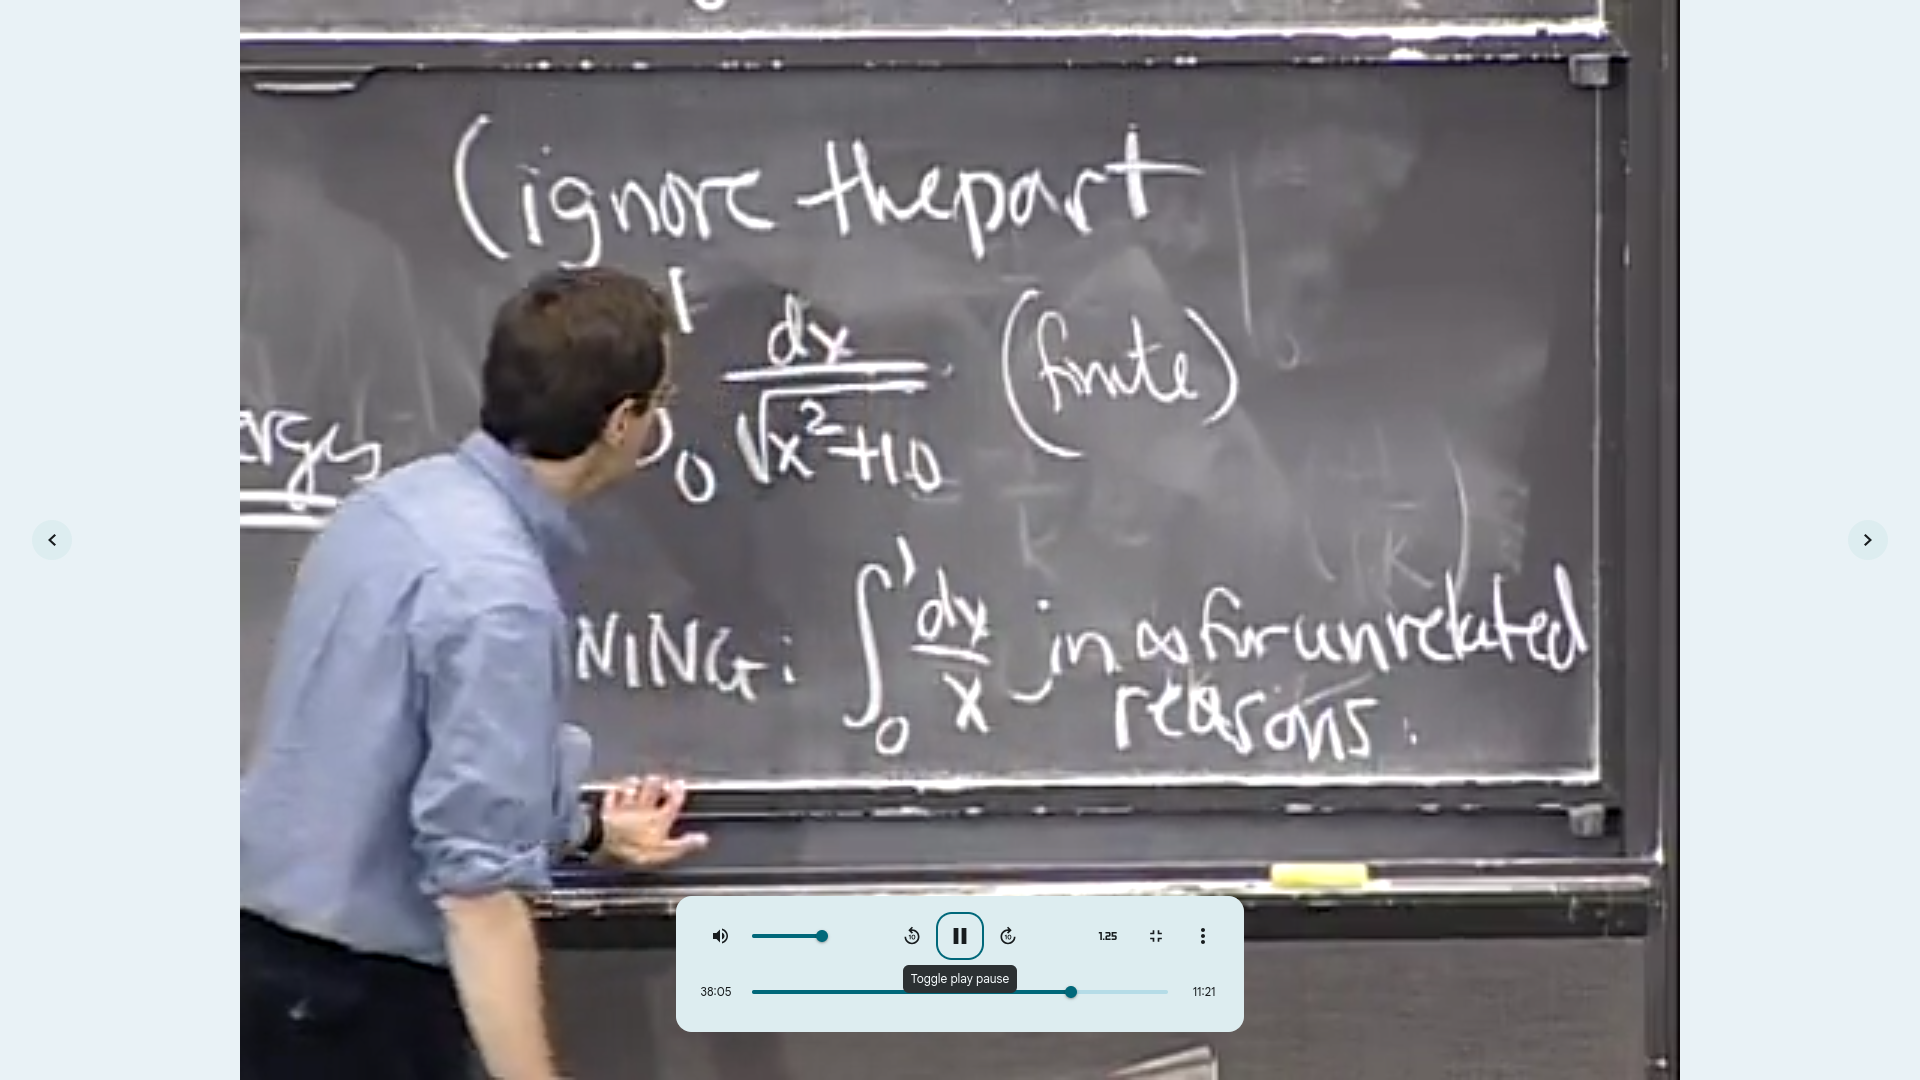 (ignore the part
dx
√x²+10
(finite)
0
ergs
NING: ∫₀¹ dx/x in ∞ for unrelated
reasons.
1.25
Toggle play pause
38:05
11:21